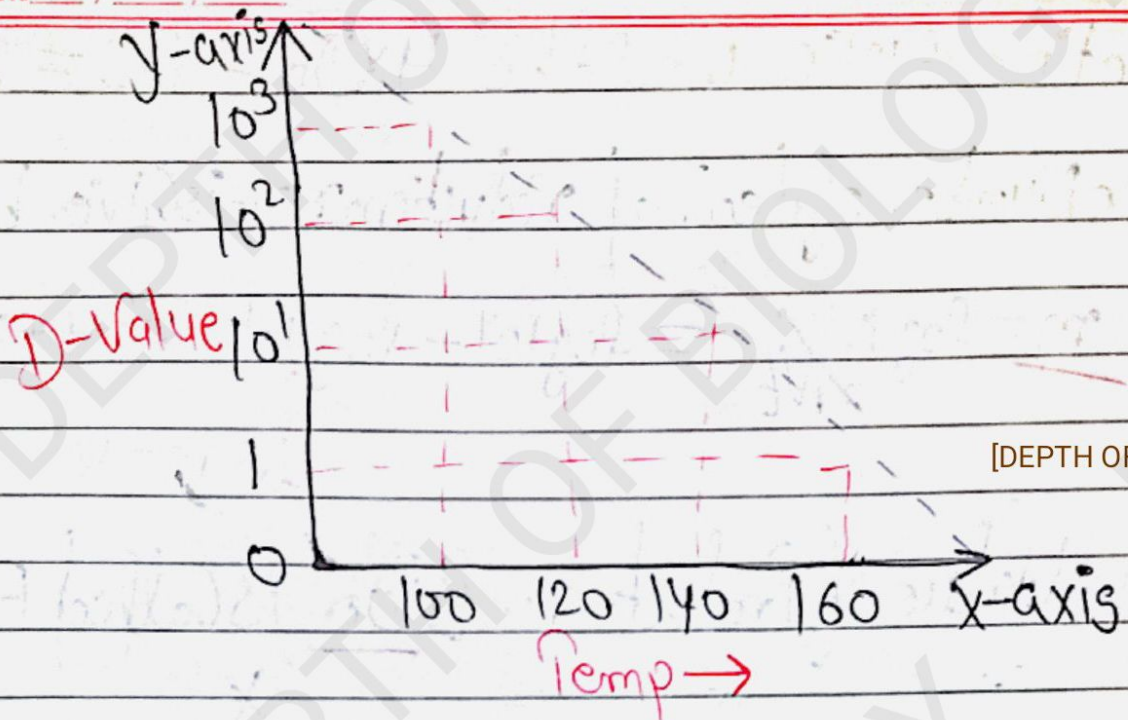 y-axis
10³
10²
D-Value 10¹
1
0
100 120 140 160 x-axis
Temp →
[DEPTH OF
DEPTH OF BIOLOG
DEPTH OF